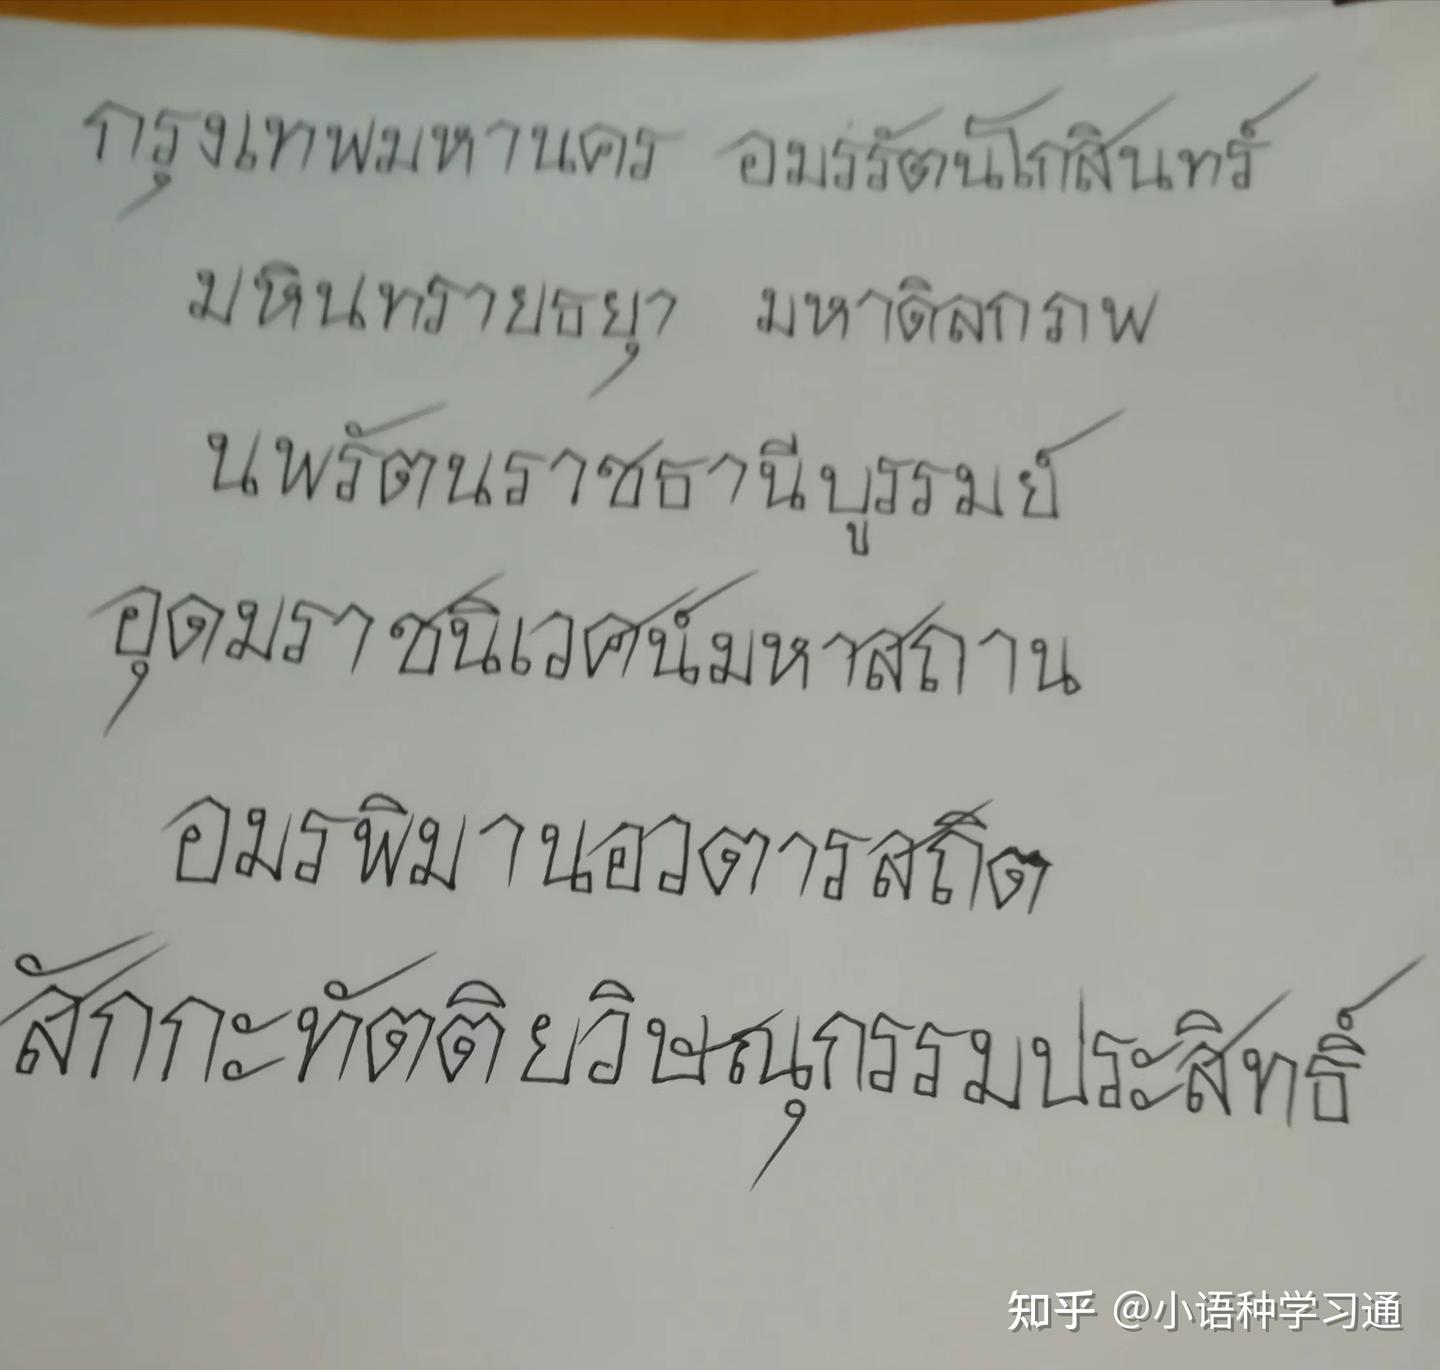 กรุงเทพมหานคร อมรรัตนโกสินทร์
มหินทรายธยุา มหาดิลกภพ
นพรัตนราชธานีบูรรมย์
อุดมราชนิเวศน์มหาสถาน
อมรพิมานอวตารสถิต
สักกะทัตติยวิษณุกรรมประสิทธิ์
知乎 @小语种学习通